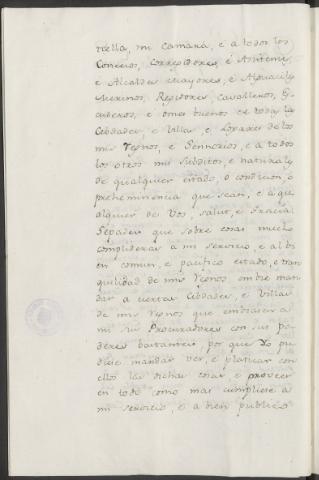 ciella, mi camara, e a todos los
Concejos, Corregidores, é Asistente,
é Alcaldes mayores, é Alguaciles
Merinos, Regidores, Cavalleros, Es
cuderos, e omes buenos de todas las
Cibdades, e Villas, e Logares de los
mis Reynos, e Sennorios, e a todos
los otros mis subditos, e naturales
de qualquier estado, o condicion, o
preheminencia que sean, e a qu
alquier de Vos, salut, e Gracia:
Sepades que sobre cosas mucho
complideras a mi servicio, e al bi
en comun, e pacifico estado, e tran
quilidad de mis Reynos embie man
dar a ciertas Cibdades, e Villas
de mis Reynos que embiasen a
mi sus Procuradores con sus po
deres bastantes, por que Yo pu
diese mandar ver, e platicar con
ellos las dichas cosas, e proveer
en todo como mas cumpliese a
mi servicio, e a bien publico